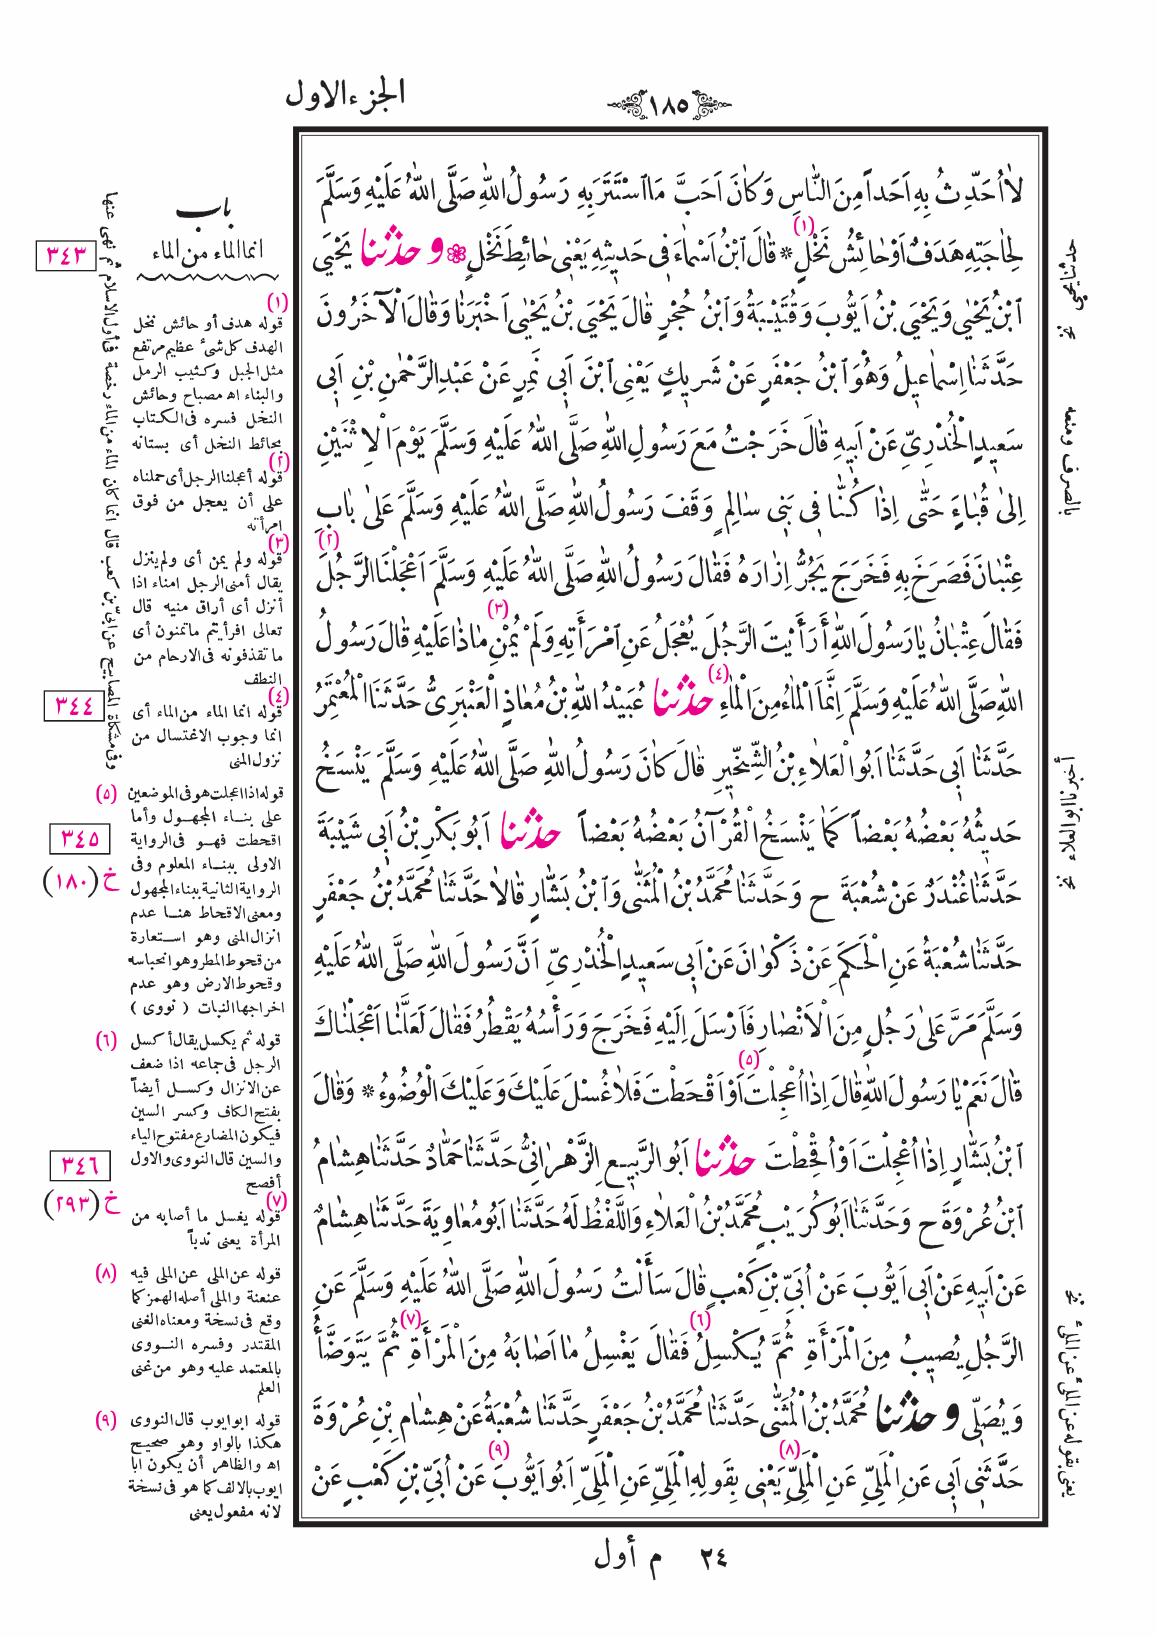 الجزء الاول
١٨٥
لَا اُحَدِّثُ بِهِ اَحَداً مِنَ النَّاسِ وَكَانَ اَحَبَّ مَا اسْتَتَرَ بِهِ رَسُولُ اللّٰهِ صَلَّى اللّٰهُ عَلَيْهِ وَسَلَّمَ
لِحَاجَتِهِ هَدَفٌ اَوْ حَائِشُ نَخْلٍ (١) * قَالَ ابْنُ اَسْمَاءَ فِى حَدِيثِهِ يَعْنِى حَائِطَ نَخْلٍ ❀ و حدثنا يَحْيَى
ابْنُ يَحْيٰى وَيَحْيَى بْنُ اَيُّوبَ وَقُتَيْبَةُ وَابْنُ حُجْرٍ قَالَ يَحْيَى بْنُ يَحْيٰى اَخْبَرَنَا وَقَالَ الْآخَرُونَ
حَدَّثَنَا اِسْمَاعِيلُ وَهُوَ ابْنُ جَعْفَرٍ عَنْ شَرِيكٍ يَعْنِى ابْنَ اَبِى نَمِرٍ عَنْ عَبْدِ الرَّحْمٰنِ بْنِ اَبِى
سَعِيدٍ الْخُدْرِىِّ عَنْ اَبِيهِ قَالَ خَرَجْتُ مَعَ رَسُولِ اللّٰهِ صَلَّى اللّٰهُ عَلَيْهِ وَسَلَّمَ يَوْمَ الْاِثْنَيْنِ
اِلٰى قُبَاءٍ حَتّٰى اِذَا كُنَّا فِى بَنِى سَالِمٍ وَقَفَ رَسُولُ اللّٰهِ صَلَّى اللّٰهُ عَلَيْهِ وَسَلَّمَ عَلٰى بَابِ
عِتْبَانَ فَصَرَخَ بِهِ فَخَرَجَ يَجُرُّ اِزَارَهُ فَقَالَ رَسُولُ اللّٰهِ صَلَّى اللّٰهُ عَلَيْهِ وَسَلَّمَ اَعْجَلْنَا (٢) الرَّجُلَ
فَقَالَ عِتْبَانُ يَا رَسُولَ اللّٰهِ أَرَأَيْتَ الرَّجُلَ يُعْجَلُ عَنِ امْرَأَتِهِ وَلَمْ يُمْنِ (٣) مَاذَا عَلَيْهِ قَالَ رَسُولُ
اللّٰهِ صَلَّى اللّٰهُ عَلَيْهِ وَسَلَّمَ اِنَّمَا الْمَاءُ مِنَ الْمَاءِ (٤) حدثنا عُبَيْدُ اللّٰهِ بْنُ مُعَاذٍ الْعَنْبَرِىُّ حَدَّثَنَا الْمُعْتَمِرُ
حَدَّثَنَا اَبِى حَدَّثَنَا اَبُو الْعَلَاءِ بْنُ الشِّخِّيرِ قَالَ كَانَ رَسُولُ اللّٰهِ صَلَّى اللّٰهُ عَلَيْهِ وَسَلَّمَ يَنْسَخُ
حَدِيثُهُ بَعْضُهُ بَعْضاً كَمَا يَنْسَخُ الْقُرْآنُ بَعْضُهُ بَعْضاً حدثنا اَبُو بَكْرِ بْنُ اَبِى شَيْبَةَ
حَدَّثَنَا غُنْدَرٌ عَنْ شُعْبَةَ ح وَحَدَّثَنَا مُحَمَّدُ بْنُ الْمُثَنّٰى وَابْنُ بَشَّارٍ قَالَا حَدَّثَنَا مُحَمَّدُ بْنُ جَعْفَرٍ
حَدَّثَنَا شُعْبَةُ عَنِ الْحَكَمِ عَنْ ذَكْوَانَ عَنْ اَبِى سَعِيدٍ الْخُدْرِىِّ اَنَّ رَسُولَ اللّٰهِ صَلَّى اللّٰهُ عَلَيْهِ
وَسَلَّمَ مَرَّ عَلٰى رَجُلٍ مِنَ الْاَنْصَارِ فَاَرْسَلَ اِلَيْهِ فَخَرَجَ وَرَأْسُهُ يَقْطُرُ فَقَالَ لَعَلَّنَا اَعْجَلْنَاكَ
قَالَ نَعَمْ يَا رَسُولَ اللّٰهِ قَالَ اِذَا اُعْجِلْتَ (٥) اَوْ اَقْحَطْتَ فَلَا غُسْلَ عَلَيْكَ وَعَلَيْكَ الْوُضُوءُ * وَقَالَ
ابْنُ بَشَّارٍ اِذَا اُعْجِلْتَ اَوْ اُقْحِطْتَ حدثنا اَبُو الرَّبِيعِ الزَّهْرَانِىُّ حَدَّثَنَا حَمَّادٌ حَدَّثَنَا هِشَامُ
ابْنُ عُرْوَةَ ح وَحَدَّثَنَا اَبُو كُرَيْبٍ مُحَمَّدُ بْنُ الْعَلَاءِ وَاللَّفْظُ لَهُ حَدَّثَنَا اَبُو مُعَاوِيَةَ حَدَّثَنَا هِشَامٌ
عَنْ اَبِيهِ عَنْ اَبِى اَيُّوبَ عَنْ اُبَىِّ بْنِ كَعْبٍ قَالَ سَأَلْتُ رَسُولَ اللّٰهِ صَلَّى اللّٰهُ عَلَيْهِ وَسَلَّمَ عَنِ
الرَّجُلِ يُصِيبُ مِنَ الْمَرْأَةِ ثُمَّ يُكْسِلُ (٦) فَقَالَ يَغْسِلُ مَا اَصَابَهُ مِنَ الْمَرْأَةِ (٧) ثُمَّ يَتَوَضَّأُ
وَيُصَلِّى و حدثنا مُحَمَّدُ بْنُ الْمُثَنّٰى حَدَّثَنَا مُحَمَّدُ بْنُ جَعْفَرٍ حَدَّثَنَا شُعْبَةُ عَنْ هِشَامِ بْنِ عُرْوَةَ
حَدَّثَنِى اَبِى عَنِ الْمَلِىِّ عَنِ الْمَلِىِّ (٨) يَعْنِى بِقَوْلِهِ الْمَلِىِّ عَنِ الْمَلِىِّ اَبُو اَيُّوبَ (٩) عَنْ اُبَىِّ بْنِ كَعْبٍ عَنْ
باب
انما الماء من الماء
(١)
قوله هدف أو حائش نخل
الهدف كل شىء عظيم مرتفع
مثل الجبل وكثيب الرمل
والبناء اه مصباح وحائش
النخل فسره فى الكتاب
بحائط النخل أى بستانه
(٢)
قوله أعجلنا الرجل أى حملناه
على أن يعجل من فوق
امرأته
(٣)
قوله ولم يمن أى ولم ينزل
يقال أمنى الرجل امناء اذا
أنزل أى أراق منيه قال
تعالى افرأيتم ما تمنون أى
ما تقذفونه فى الارحام من
النطف
(٤)
قوله انما الماء من الماء أى
انما وجوب الاغتسال من
نزول المنى
(٥) قوله اذا اعجلت هو فى الموضعين
على بناء المجهول وأما
اقحطت فهو فى الرواية
الاولى ببناء المعلوم وفى
الرواية الثانية ببناء المجهول
ومعنى الاقحاط هنا عدم
انزال المنى وهو استعارة
من قحوط المطر وهو انحباسه
وقحوط الارض وهو عدم
اخراجها النبات ( نووى )
(٦) قوله ثم يكسل يقال أكسل
الرجل فى جماعه اذا ضعف
عن الانزال وكسل أيضاً
بفتح الكاف وكسر السين
فيكون المضارع مفتوح الياء
والسين قال النووى والاول
أفصح
(٧)
قوله يغسل ما أصابه من
المرأة يعنى ندباً
(٨) قوله عن الملى عن الملى فيه
عنعنة والملى أصله الهمز كما
وقع فى نسخة ومعناه الغنى
المقتدر وفسره النووى
بالمعتمد عليه وهو من غنى
العلم
(٩) قوله ابو ايوب قال النووى
هكذا بالواو وهو صحيح
اه والظاهر أن يكون ابا
ايوب بالالف كما هو فى نسخة
لانه مفعول يعنى
وفى مشكاة المصابيح عن ابىّ بن كعب قال انما كان الماء من الماء رخصة فى أول الاسلام ثم نهى عنها
٣٤٣
٣٤٤
٣٤٥
خ (١٨٠)
٣٤٦
خ (٢٩٣)
بالصرف ومنعه
أخبرنا ابو العلاء
يعنى بقوله عن الملىء عن الملىء
٢٤ م أول